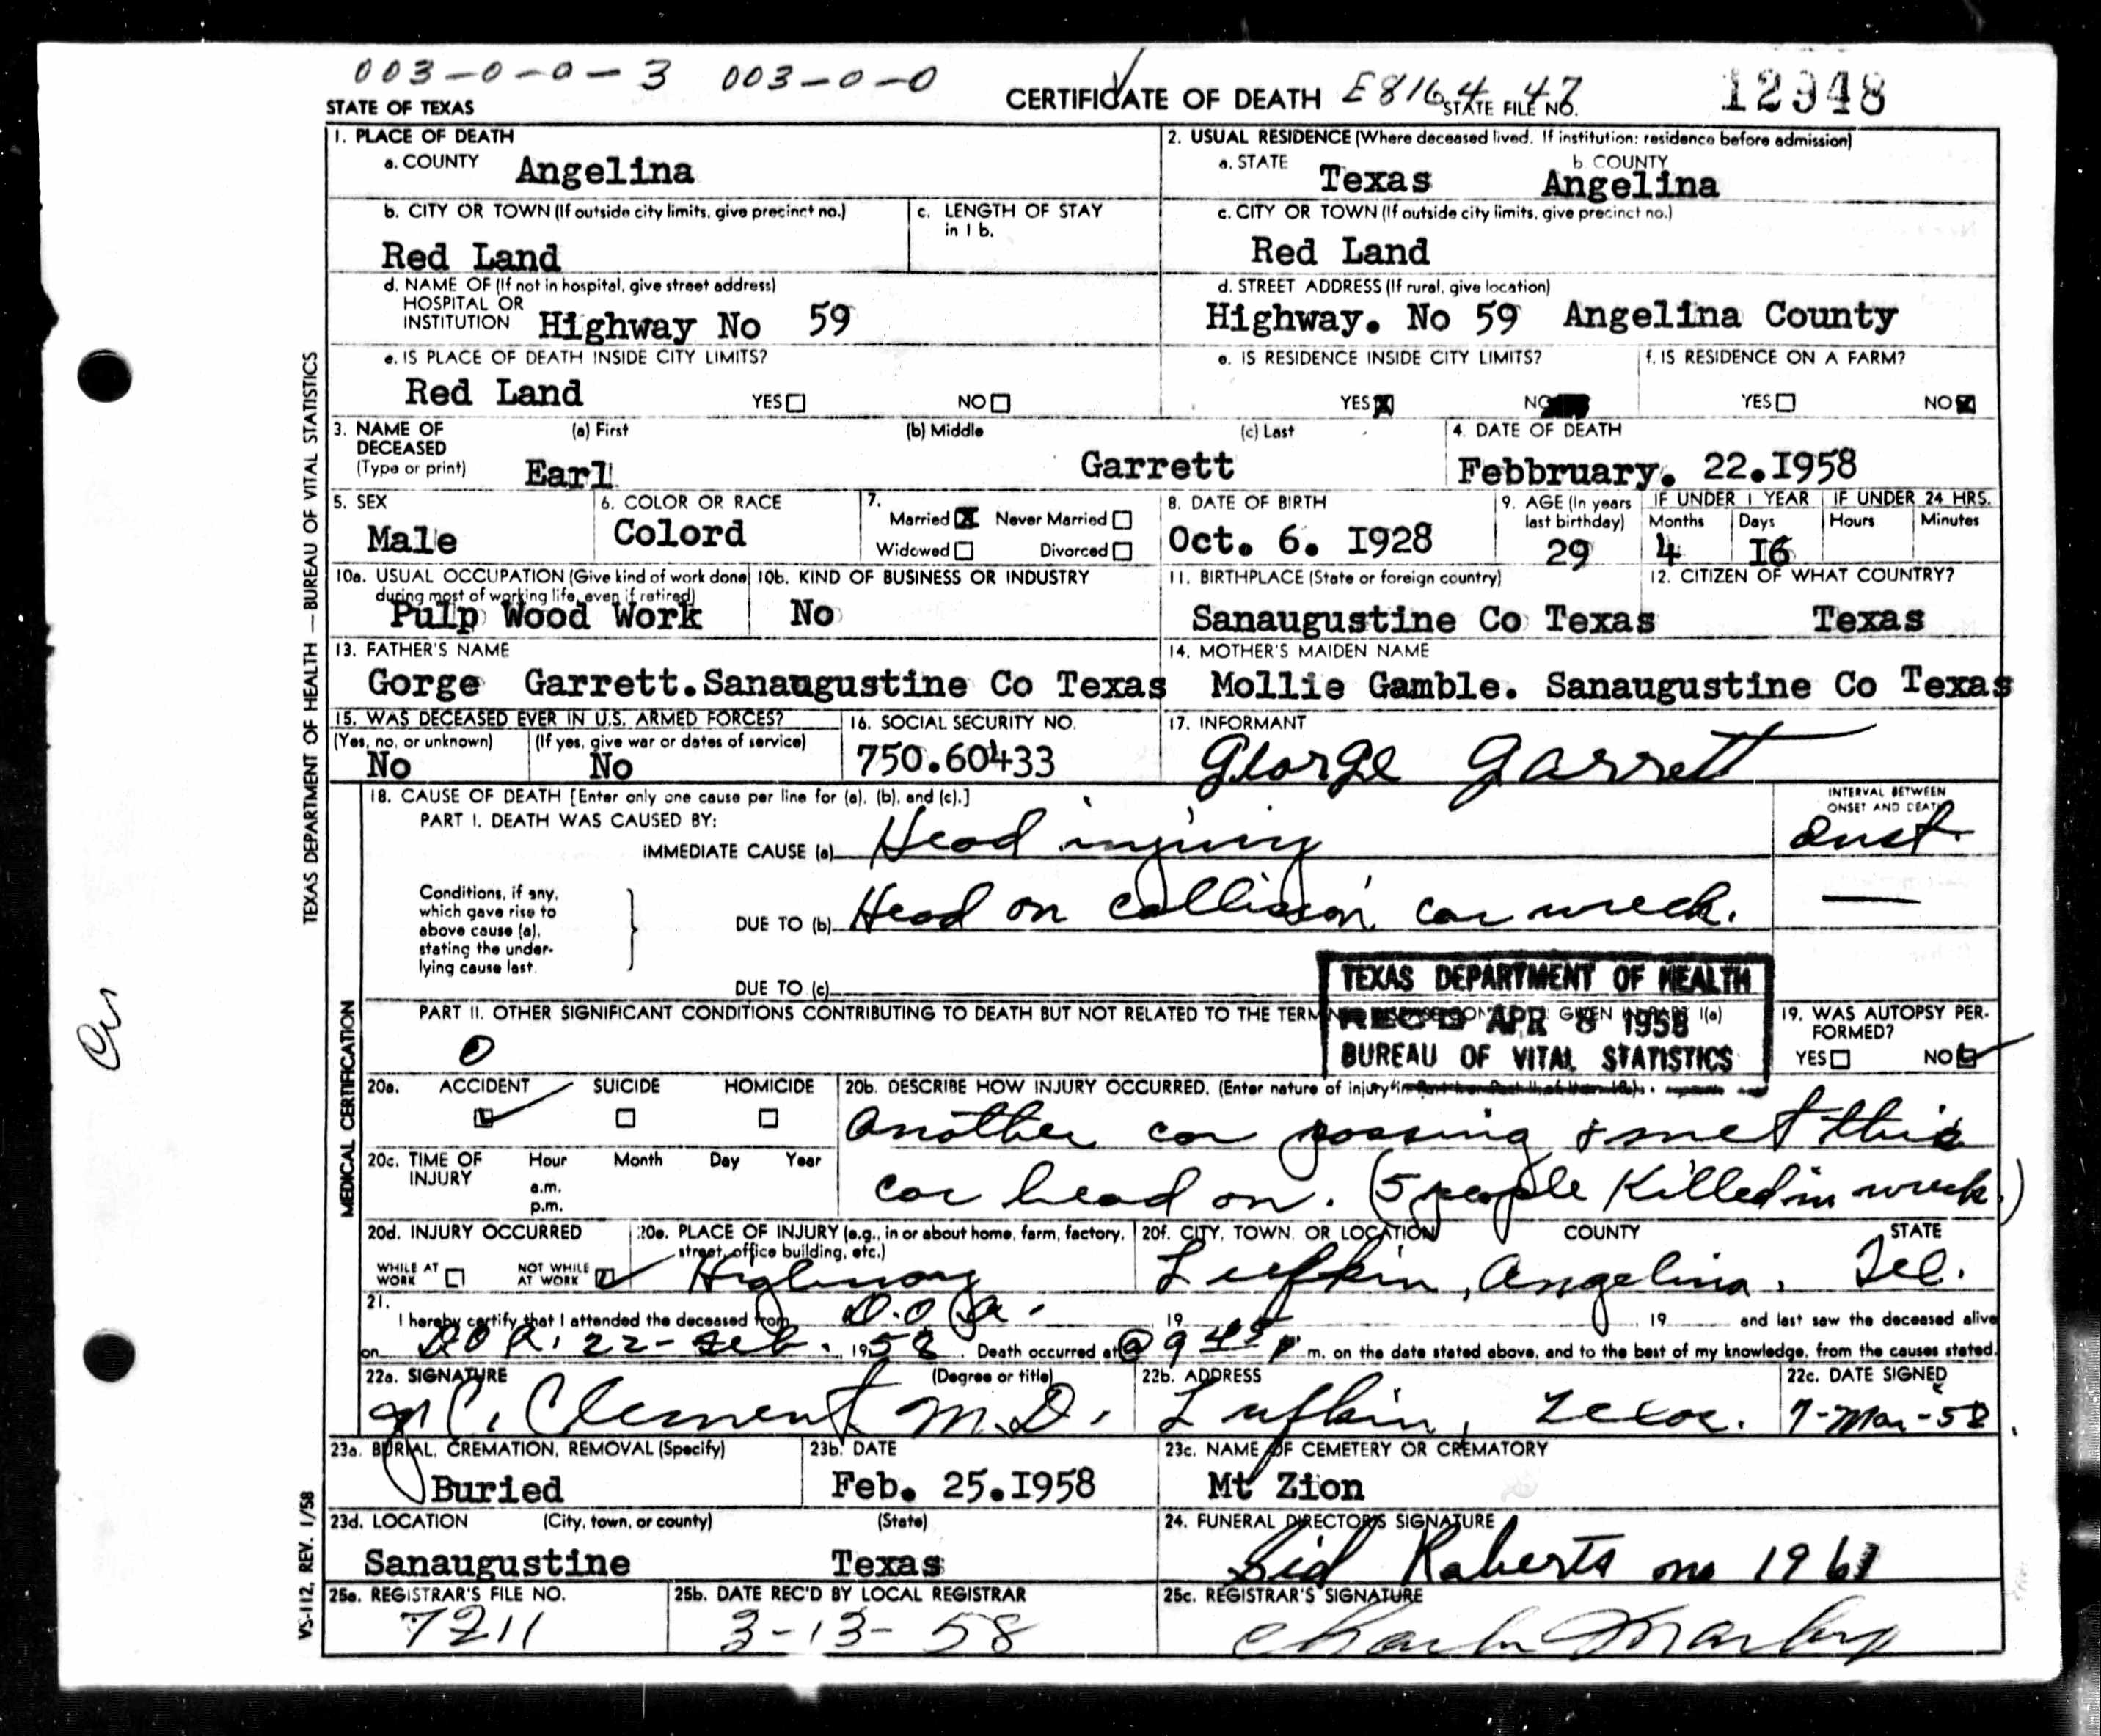 003-0-0-3 003-0-0
CERTIFICATE OF DEATH E8164 47 STATE FILE NO. 12948
STATE OF TEXAS
1. PLACE OF DEATH
a. COUNTY Angelina
2. USUAL RESIDENCE (Where deceased lived. If institution: residence before admission)
a. STATE Texas b. COUNTY Angelina
b. CITY OR TOWN (If outside city limits, give precinct no.) Red Land
c. LENGTH OF STAY in 1 b.
c. CITY OR TOWN (If outside city limits, give precinct no.) Red Land
d. NAME OF (If not in hospital, give street address) HOSPITAL OR INSTITUTION Highway No 59
d. STREET ADDRESS (If rural, give location) Highway. No 59 Angelina County
e. IS PLACE OF DEATH INSIDE CITY LIMITS? Red Land YES NO
e. IS RESIDENCE INSIDE CITY LIMITS? YES NO
f. IS RESIDENCE ON A FARM? YES NO
3. NAME OF DECEASED (Type or print)
(a) First Earl
(b) Middle
(c) Last Garrett
4. DATE OF DEATH Febbruary. 22.I958
5. SEX Male
6. COLOR OR RACE Colord
7. Married Never Married
Widowed Divorced
8. DATE OF BIRTH Oct. 6. I928
9. AGE (In years last birthday) 29
IF UNDER 1 YEAR Months 4 Days I6
IF UNDER 24 HRS. Hours Minutes
10a. USUAL OCCUPATION (Give kind of work done during most of working life, even if retired) Pulp Wood Work
10b. KIND OF BUSINESS OR INDUSTRY No
11. BIRTHPLACE (State or foreign country) Sanaugustine Co Texas
12. CITIZEN OF WHAT COUNTRY? Texas
13. FATHER'S NAME Gorge Garrett.Sanaugustine Co Texas
14. MOTHER'S MAIDEN NAME Mollie Gamble. Sanaugustine Co Texas
15. WAS DECEASED EVER IN U.S. ARMED FORCES?
(Yes, no, or unknown) No
(If yes, give war or dates of service) No
16. SOCIAL SECURITY NO. 750.60433
17. INFORMANT George Garrett
18. CAUSE OF DEATH [Enter only one cause per line for (a), (b), and (c).]
PART I. DEATH WAS CAUSED BY:
IMMEDIATE CAUSE (a) Head injury
INTERVAL BETWEEN ONSET AND DEATH inst.
Conditions, if any, which gave rise to above cause (a), stating the underlying cause last.
DUE TO (b) Head on collision car wreck. —
DUE TO (c)
TEXAS DEPARTMENT OF HEALTH
REC'D APR 8 1958
BUREAU OF VITAL STATISTICS
PART II. OTHER SIGNIFICANT CONDITIONS CONTRIBUTING TO DEATH BUT NOT RELATED TO THE TERM GIVEN IN PART I(a)
0
19. WAS AUTOPSY PERFORMED?
YES NO
20a. ACCIDENT SUICIDE HOMICIDE
20b. DESCRIBE HOW INJURY OCCURRED. (Enter nature of injury in
Another car passing & met this
car head on. (5 people Killed in wreck.)
20c. TIME OF INJURY Hour Month Day Year
a.m.
p.m.
20d. INJURY OCCURRED
WHILE AT WORK NOT WHILE AT WORK
20e. PLACE OF INJURY (e.g., in or about home, farm, factory, street, office building, etc.) Highway
20f. CITY, TOWN, OR LOCATION COUNTY STATE
Lufkin, Angelina, Tex.
21. I hereby certify that I attended the deceased from D.O.A. 19 , 19 and last saw the deceased alive
on DOA. 22-Feb. 1958. Death occurred at @ 9 45 p m. on the date stated above, and to the best of my knowledge, from the causes stated.
22a. SIGNATURE (Degree or title) Clement M.D.
22b. ADDRESS Lufkin, Texas.
22c. DATE SIGNED 7-Mar-58
23a. BURIAL, CREMATION, REMOVAL (Specify) Buried
23b. DATE Feb. 25.I958
23c. NAME OF CEMETERY OR CREMATORY Mt Zion
23d. LOCATION (City, town, or county) (State)
Sanaugustine Texas
24. FUNERAL DIRECTOR'S SIGNATURE Sid Roberts no 1961
25a. REGISTRAR'S FILE NO. 7211
25b. DATE REC'D BY LOCAL REGISTRAR 3-13-58
25c. REGISTRAR'S SIGNATURE
TEXAS DEPARTMENT OF HEALTH — BUREAU OF VITAL STATISTICS
MEDICAL CERTIFICATION
VS-112, REV. 1/58